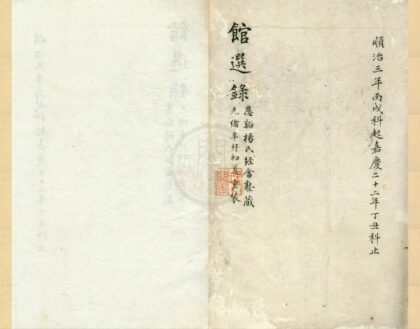 順治三年丙戌科起嘉慶二十二年丁丑科止
館選錄
慈谿楊氏經畬塾藏
光緒